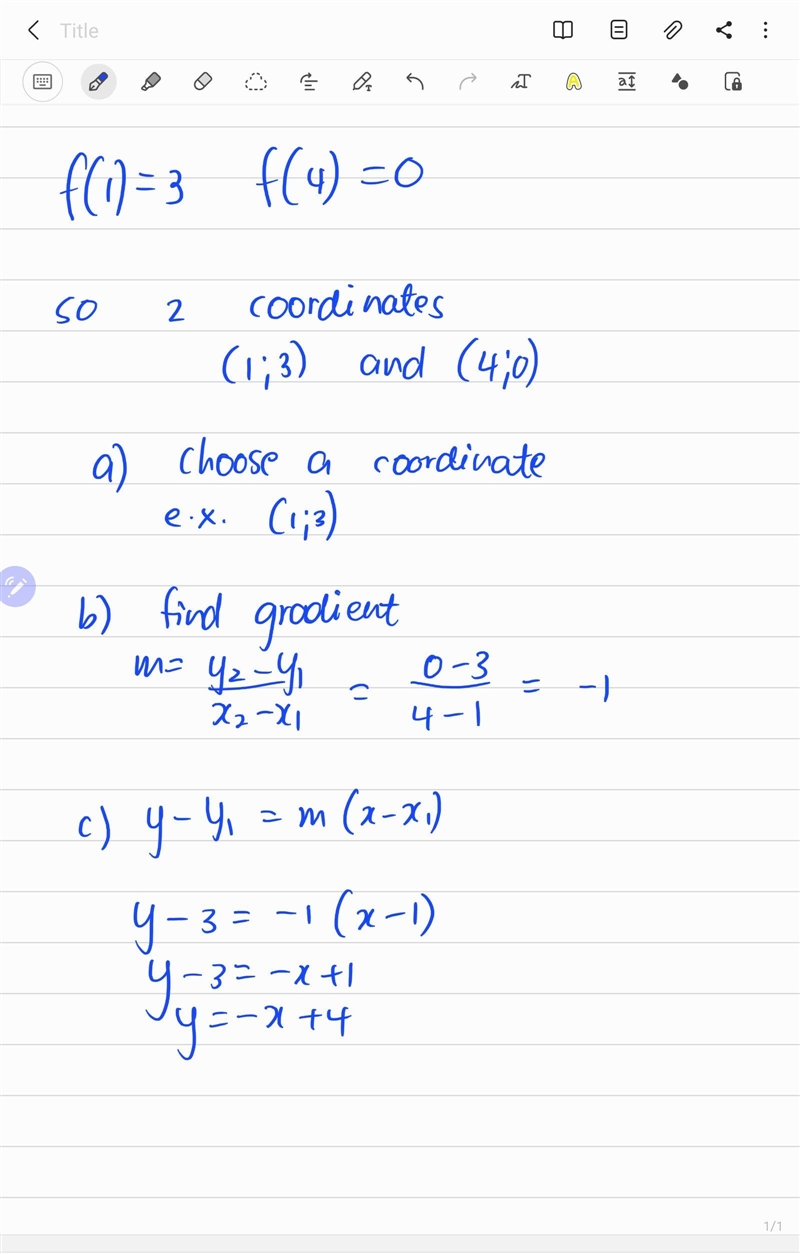 Title
f(1)=3 f(4)=0
so 2 coordinates
(1;3) and (4;0)
a) choose a coordinate
e.x. (1;3)
b) find gradient
m= y₂-y₁ / x₂-x₁ = 0-3 / 4-1 = -1
c) y-y₁ = m(x-x₁)
y-3 = -1(x-1)
y-3=-x+1
y=-x+4
1/1